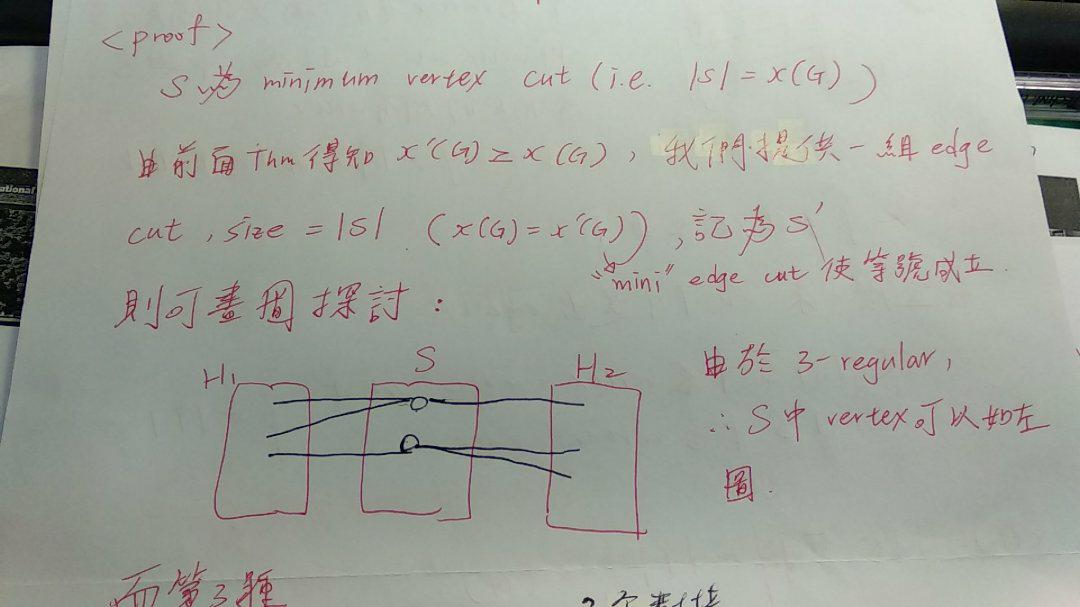 <proof>
S 為 minimum vertex cut (i.e. |S| = x(G))
由前面 Thm 得知 x'(G) ≥ x(G), 我們提供一組 edge
cut, size = |S| (x(G) = x'(G)), 記為 S'
"mini" edge cut 使等號成立.
則可畫圖探討:
H1 S H2
由於 3-regular,
∴ S中 vertex可以如左
圖.
而第3種
ational